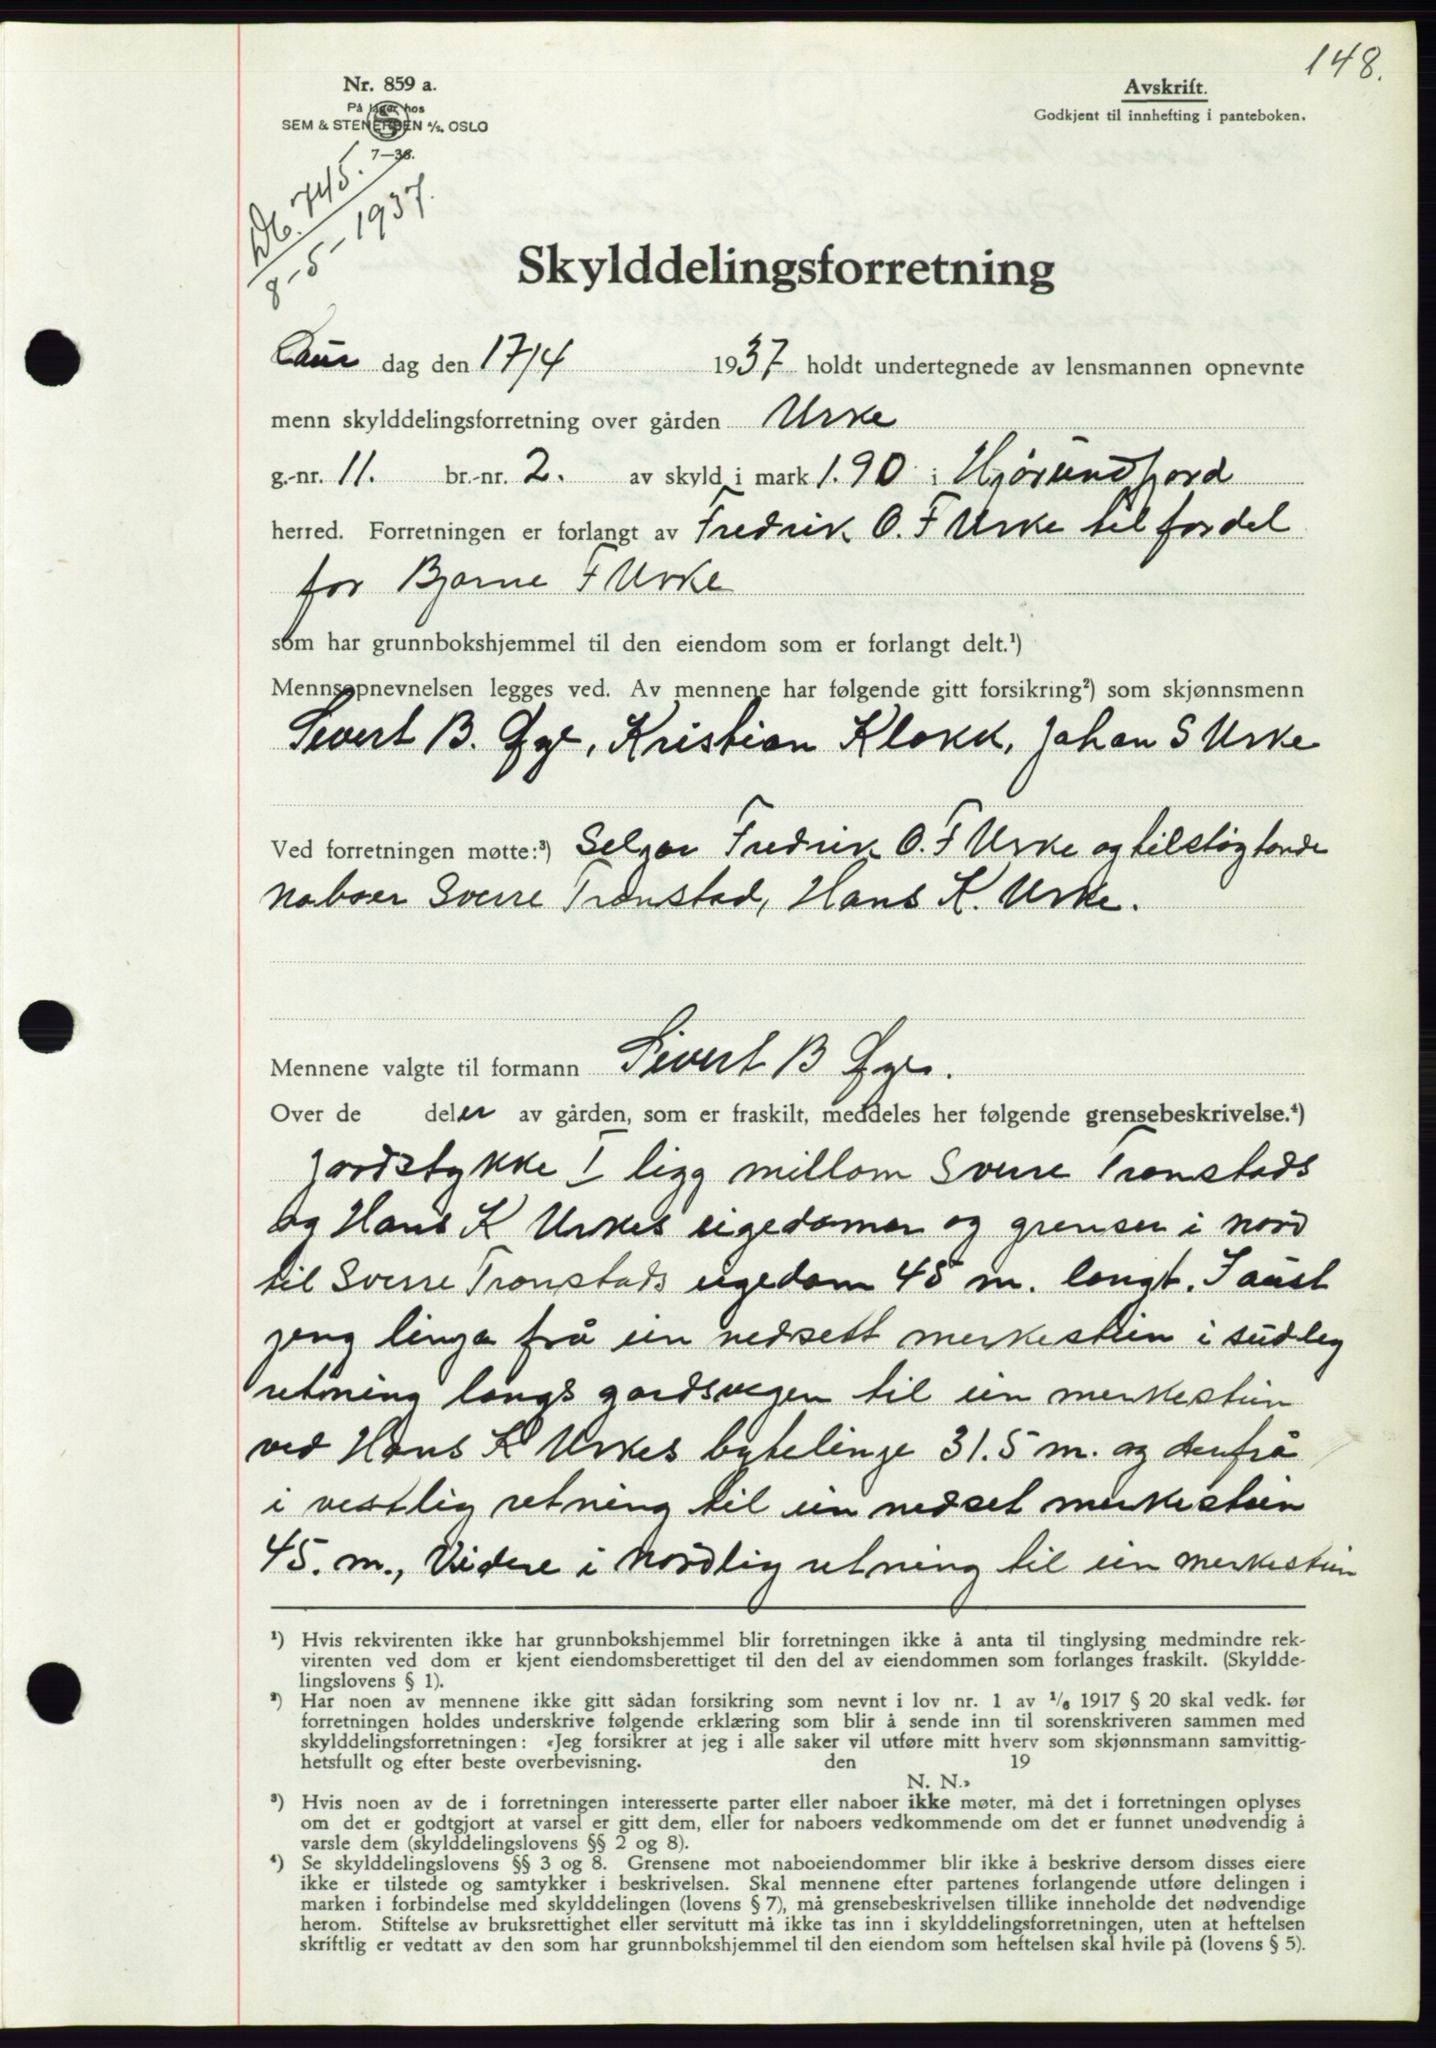 148.
Nr. 859 a.
På lager hos
SEM & STENERSEN A/S. OSLO
7—36.
Avskrift.
Godkjent til innhefting i panteboken.
Db. 745.
8-5-1937.
Skylddelingsforretning
Laur dag den 17/4 1937 holdt undertegnede av lensmannen opnevnte
menn skylddelingsforretning over gården Urke
g.-nr. 11. br.-nr. 2. av skyld i mark 1.90 i Hjørundfjord
herred. Forretningen er forlangt av Fredrik O. F Urke til fordel
for Bjarne F Urke
som har grunnbokshjemmel til den eiendom som er forlangt delt.¹)
Mennsopnevnelsen legges ved. Av mennene har følgende gitt forsikring²) som skjønnsmenn
Sivert B. Øye, Kristian Klokk, Johan S Urke
Ved forretningen møtte:³) Seljar Fredrik O. F Urke og tilstøytande
naboer Sverre Tronstad, Hans K. Urke.
Mennene valgte til formann Sivert B Øye.
Over de deler av gården, som er fraskilt, meddeles her følgende grensebeskrivelse.⁴)
Jordstykke I ligg millom Sverre Tronstads
og Hans K Urkes eigedomar og grensar i nord
til Sverre Tronstads eigedom 45 m. langt. I aust
geng linja frå ein nedsett merkestein i sudleg
retning langs gardsvegen til ein merkestein
ved Hans K Urkes bytelinje 31.5 m. og derfrå
i vestlig retning til ein nedset merkestein
45. m., Videre i nordlig retning til ein merkestein
¹) Hvis rekvirenten ikke har grunnbokshjemmel blir forretningen ikke å anta til tinglysing medmindre rek-
virenten ved dom er kjent eiendomsberettiget til den del av eiendommen som forlanges fraskilt. (Skyldde-
lingslovens § 1).
²) Har noen av mennene ikke gitt sådan forsikring som nevnt i lov nr. 1 av ¹/₈ 1917 § 20 skal vedk. før
forretningen holdes underskrive følgende erklæring som blir å sende inn til sorenskriveren sammen med
skylddelingsforretningen: «Jeg forsikrer at jeg i alle saker vil utføre mitt hverv som skjønnsmann samvittig-
hetsfullt og efter beste overbevisning. den 19
N. N.»
³) Hvis noen av de i forretningen interesserte parter eller naboer ikke møter, må det i forretningen oplyses
om det er godtgjort at varsel er gitt dem, eller for naboers vedkommende om det er funnet unødvendig å
varsle dem (skylddelingslovens §§ 2 og 8).
⁴) Se skylddelingslovens §§ 3 og 8. Grensene mot naboeiendommer blir ikke å beskrive dersom disses eiere
ikke er tilstede og samtykker i beskrivelsen. Skal mennene efter partenes forlangende utføre delingen i
marken i forbindelse med skylddelingen (lovens § 7), må grensebeskrivelsen tillike inneholde det nødvendige
herom. Stiftelse av bruksrettighet eller servitutt må ikke tas inn i skylddelingsforretningen, uten at heftelsen
skriftlig er vedtatt av den som har grunnbokshjemmel til den eiendom som heftelsen skal hvile på (lovens § 5).